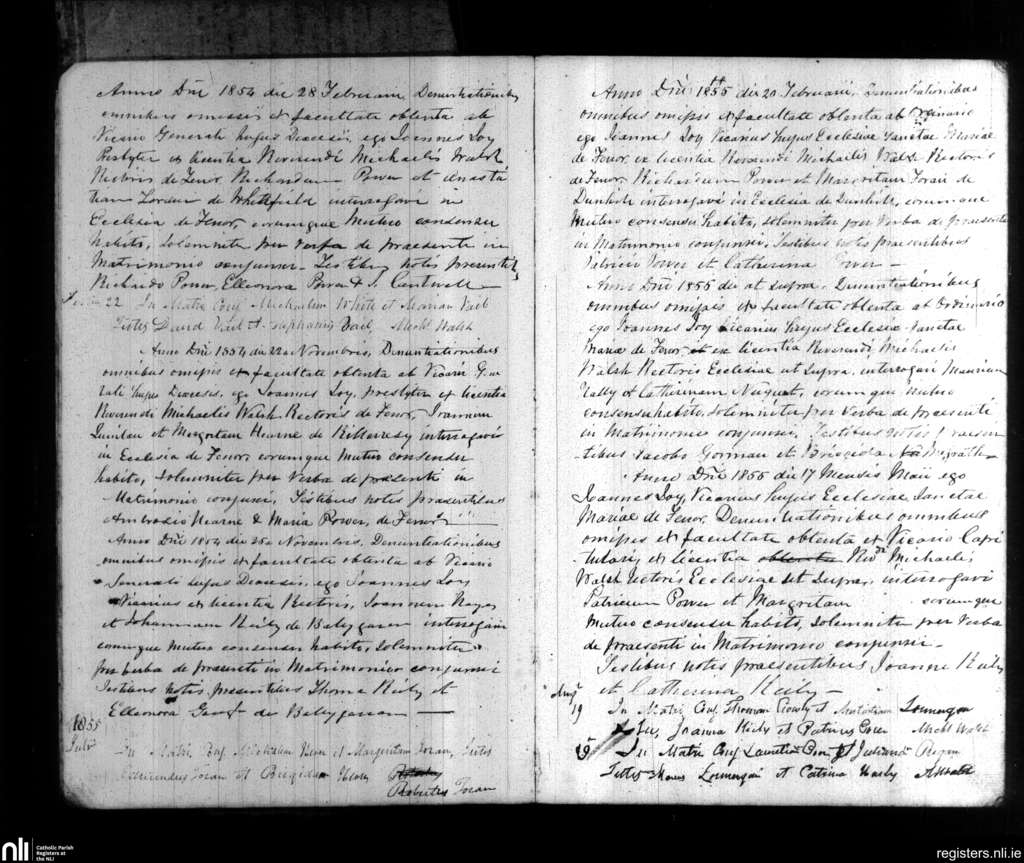 Anno Dni 1854 die 28 Februarii, Denuntiationibus
omnibus omissis et facultate oblenta ab
Vicario Generali hujus Diocesis, ego Joannes Loy
Presbyter ex licentia Reverendi Michaelis Walsh
Rectoris de Fenor, Richardum Power et Anasta
tiam de Whitfield interrogavi in
Ecclesia de Fenor, eorumque Mutuo consensu
habito, Solemniter per verba de praesenti in
Matrimonio conjunxi - Testibus notis presentib
Richardo Power, Elleonora Power & J. Cantwell
22 In Matri Conj Michaelem White et Mariam Vail
Testes David Vail et Stephanus Vail, Michl Walsh
Anno Dni 1854 die 22a Novembris, Denuntiationibus
omnibus omissis et facultate oblenta ab Vicario Gene
rali hujus Dioceses, ego Joannes Loy, presbyter ex licentia
Reverendi Michaelis Walsh Rectoris de Fenor, Joannem
Quinlan et Margretam Hearne de interrogavi
in Ecclesia de Fenor, eorumque mutuo consensu
habito, Solemniter per Verba de prasenti in
Matrimonio conjunxi, Testibus notis prasentibus
Ambrosio Hearne & Maria Power, de Fenor
Anno Dni 1854 die 25a Novembris, Denuntiationibus
omnibus omissis et facultate oblenta ab Vicario
Generali hujus Diocesis, ego Joannes Loy
Vicarius ex licentia Rectoris, Joannem
et Johannam Kiely de Balygaron interrogavi
eorumque mutuo consensu habito, Solemniter
per verba de praesenti in Matrimonio conjunxi
Testibus notis presentibus Thoma Kiely et
Elleonora de Balygaron
1855
July In Matri Conj Michaelem et Margaritam Foran, Testes
Foran et Brigidam
Robertus Foran
Anno Dni 1855 die 20 Februarii, Denuntiationibus
omnibus omissis et facultate oblenta ab Ordinario
ego Joannes Loy Vicarius hujus Ecclesiae Sanctae Mariae
de Fenor, ex licentia Reverendi Michaelis Walsh Rectoris
de Fenor, Richardum Power et Margretam Foran de
Dunhill interrogavi in Ecclesia de Dunhill, eorumque
Mutuo consensu habito, solemniter per Verba de praesenti
in Matrimonio conjunxi, Testibus notis praesentibus
Patricio Power et Catherina Power
Anno Dni 1855 die ut supra. Denuntiationibus
omnibus omissis et facultate oblenta ab Ordinario
ego Joannes Loy Vicarius hujus Ecclesiae Sanctae
Mariae de Fenor, et ex licentia Reverendi Michaelis
Walsh Rectoris Ecclesiae ut Supra, interrogavi Mauricium
Lally et Catherinam Nugent, eorumque Mutuo
consensu habito, solemniter per Verba de praesenti
in Matrimonio conjunxi, Testibus notis praesen
tibus Jacobo Gorman et Brigida Magrath
Anno Dni 1855 die 17 Mensis Maii ego
Joannes Loy, Vicarius hujus Ecclesiae Sanctae
Mariae de Fenor, Denuntiationibus omnibus
omissis et facultate oblenta ex Vicario Capi
tularis ex licentia oblenta Revdi Michaelis
Walsh Rectoris Ecclesiae ut Supra, interrogavi
Patricium Power et Margretam eorumque
Mutuo consensu habito, Solemniter per Verba
de praesenti in Matrimonio conjunxi -
Testibus notis praesentibus Joanne Kiely
et Catherina Kiely
Augt
19 In Matri Conj Thomam et Lonnergan
Tes, Joanna Kiely et Patrius Power Michl Walsh
In Matri Conj Power et Julianam Regan
Testes Lonnergan et Catrina
nli
Catholic Parish
Registers at
the NLI
registers.nli.ie